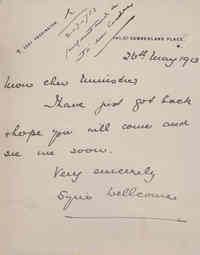 CUMBERLAND PLACE
26th May 1913
Mon cher Ministre
I have just got back
& hope you will come and
see me soon.
Very sincerely
Syrie Wellcome